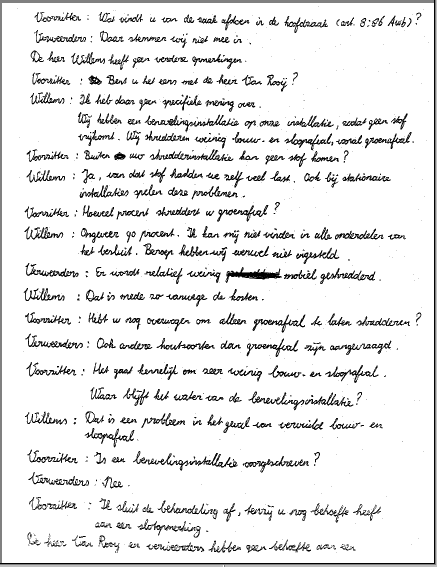 Voorzitter : Wat vindt u van de zaak afdoen in de hoofdzaak (art. 8:86 Awb)?
Verweerders : Daar stemmen wij niet mee in.
De heer Willems heeft geen verdere opmerkingen.
Voorzitter : Bent u het eens met de heer Van Rooij?
Willems : Ik heb daar geen specifieke mening over.
Wij hebben een benevelingsinstallatie op onze installatie, zodat geen stof
vrijkomt. Wij shredderen weinig bouw- en sloopafval, vooral groenafval.
Voorzitter : Buiten uw shredderinstallatie kan geen stof komen?
Willems : Ja, van dat stof hadden we zelf veel last. Ook bij stationaire
installaties spelen deze problemen.
Voorzitter : Hoeveel procent shreddert u groenafval?
Willems : Ongeveer 90 procent. Ik kan mij niet vinden in alle onderdelen van
het besluit. Beroep hebben wij evenwel niet ingesteld.
Verweerders : Er wordt relatief weinig mobiel geshredderd.
Willems : Dat is mede zo vanwege de kosten.
Voorzitter : Hebt u nog overwogen om alleen groenafval te laten shredderen?
Verweerders : Ook andere houtsoorten dan groenafval zijn aangevraagd.
Voorzitter : Het gaat kennelijk om zeer weinig bouw- en sloopafval.
Waar blijft het water van de benevelingsinstallatie?
Willems : Dat is een probleem in het geval van vervuild bouw- en
sloopafval.
Voorzitter : Is een benevelingsinstallatie voorgeschreven?
Verweerders : Nee.
Voorzitter : Ik sluit de behandeling af, tenzij u nog behoefte heeft
aan een slotopmerking.
De heer Van Rooy en verweerders hebben geen behoefte aan een